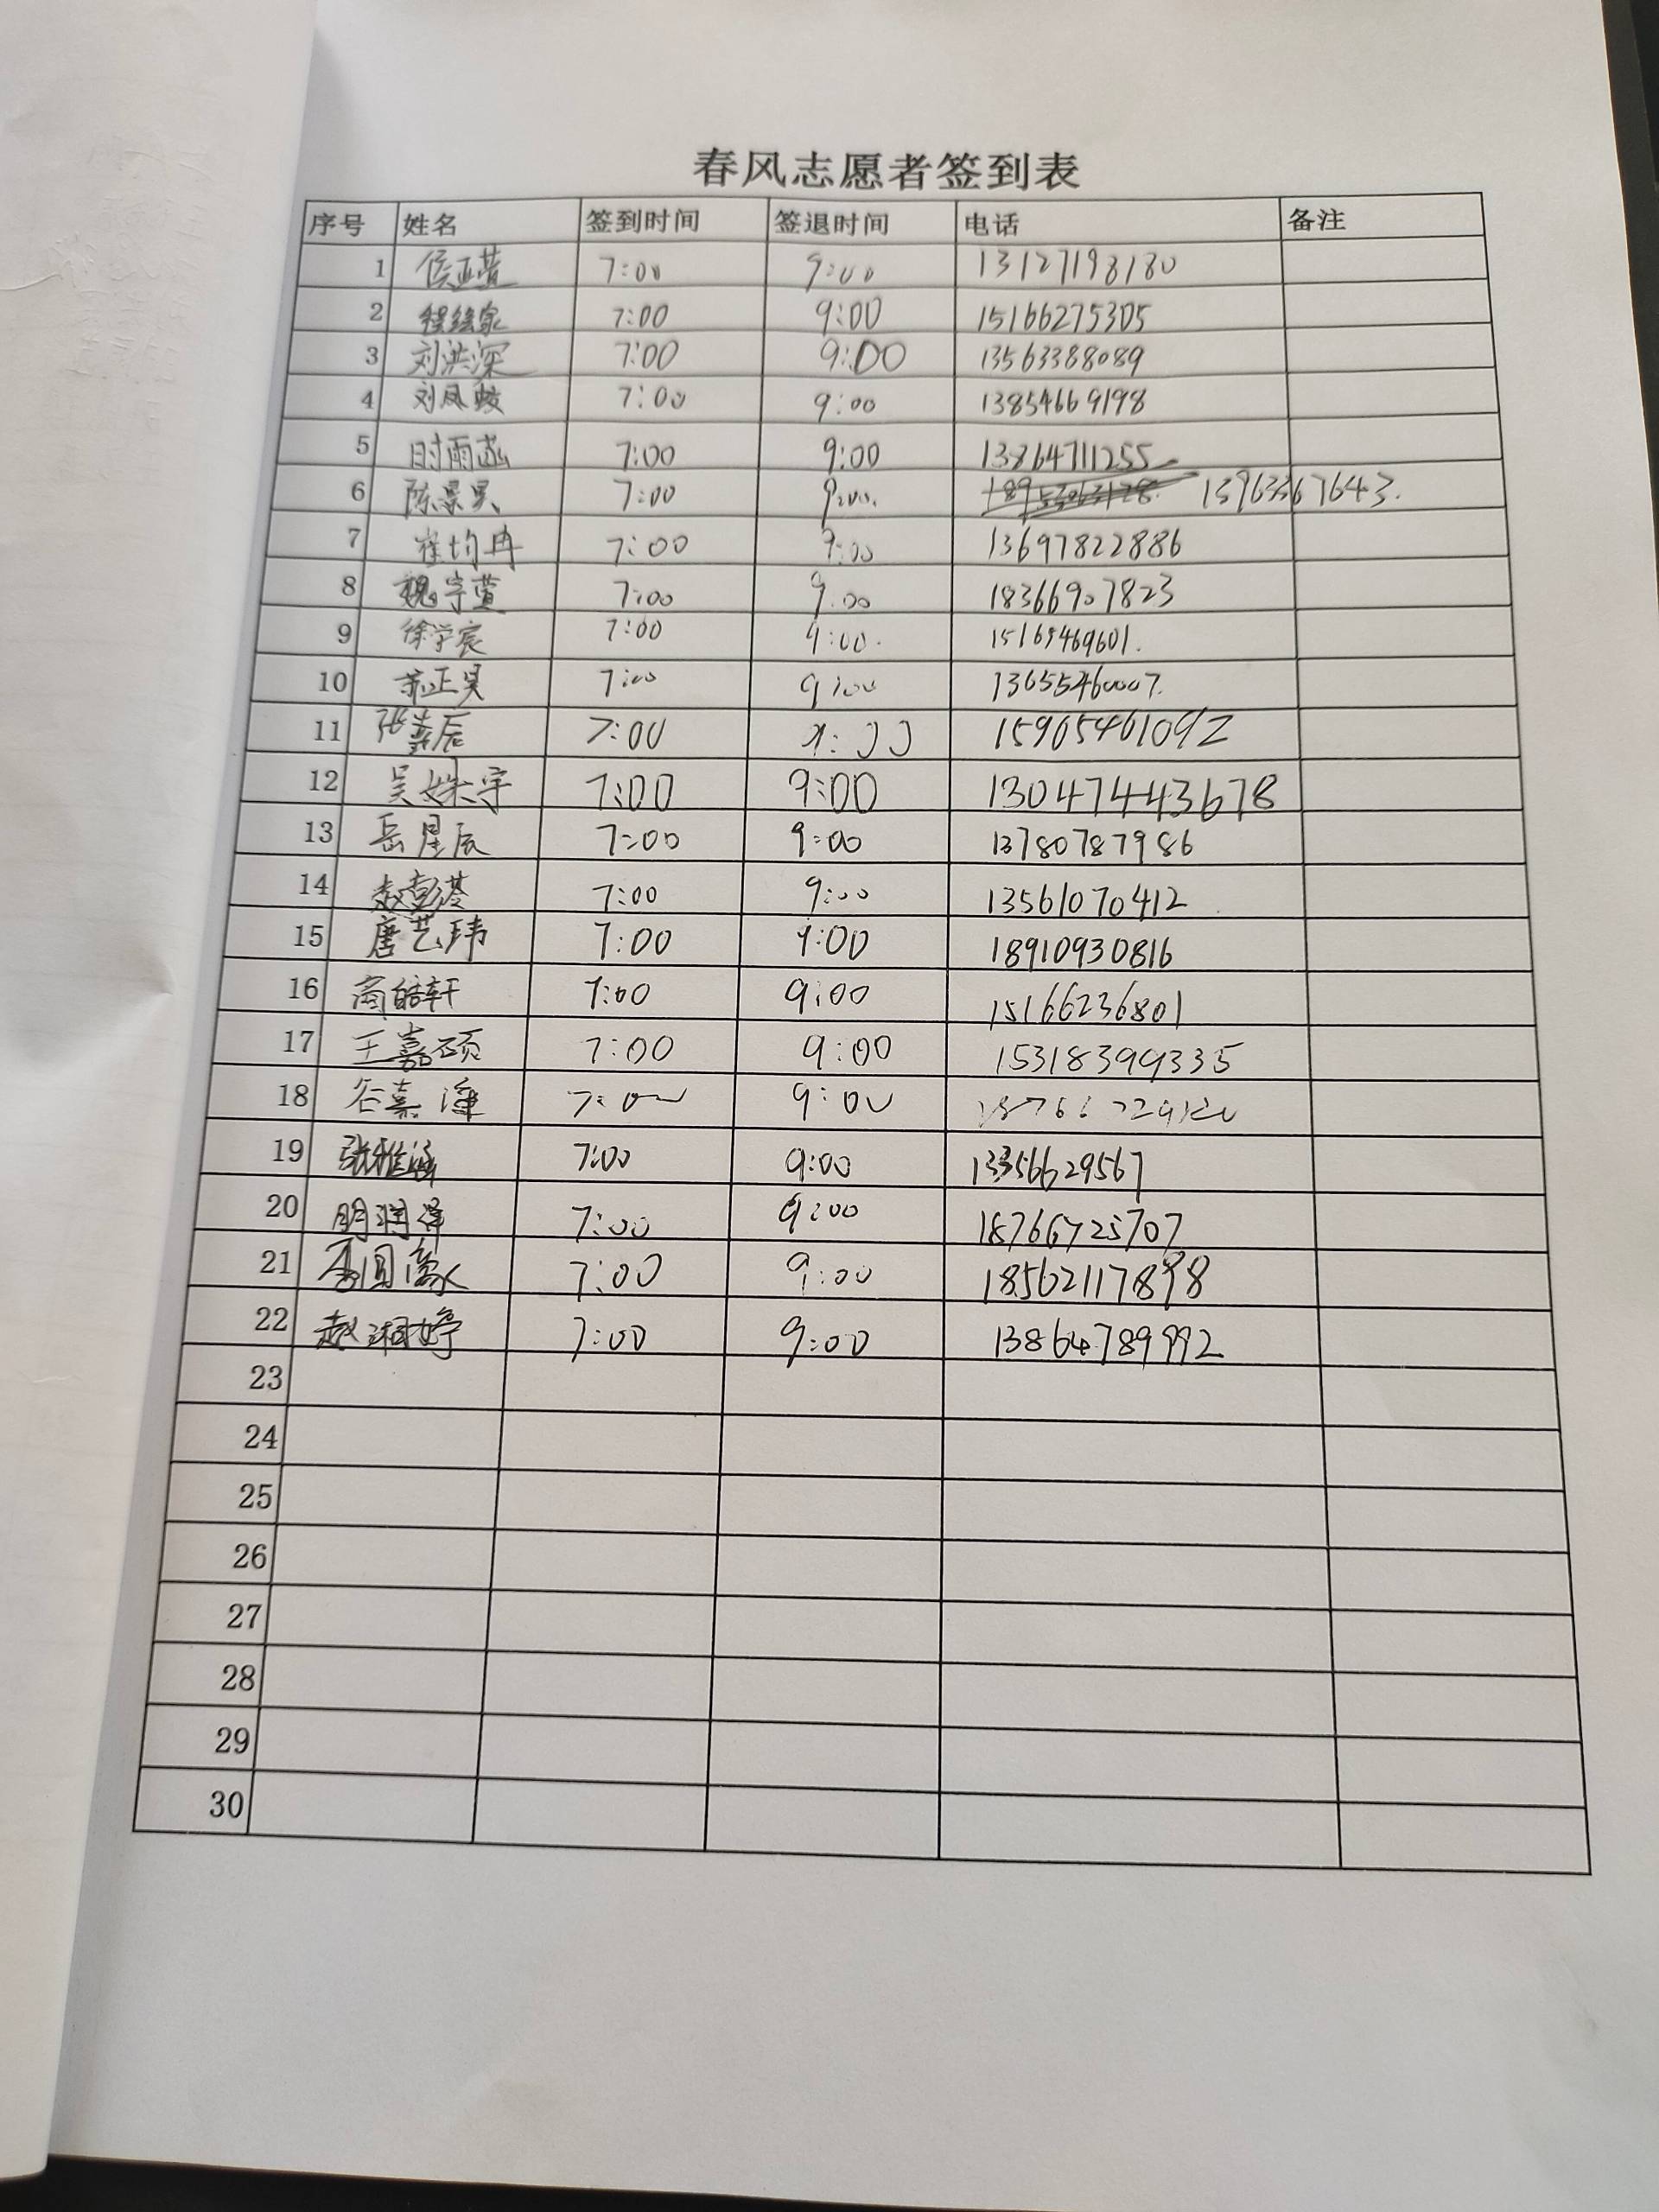 春风志愿者签到表
序号 姓名 签到时间 签退时间 电话 备注
1 侯正萱 7:00 9:00 13127198180
2 7:00 9:00 15166275305
3 刘洪深 7:00 9:00 13563388089
4 刘凤皎 7:00 9:00 13854669198
5 时雨菡 7:00 9:00 13864711255
6 陈景昊 7:00 9:00 13963367643.
7 崔均冉 7:00 9:00 13697822886
8 魏宇萱 7:00 9:00 18366907823
9 徐学宸 7:00 9:00. 15169469601.
10 正昊 7:00 9:00 13655460007.
11 张嘉辰 7:00 15965461092
12 吴姝宇 7:00 9:00 13047443678
13 岳星辰 7:00 9:00 13780787986
14 赵彭苓 7:00 9:00 13561070412
15 唐艺玮 7:00 9:00 18910930816
16 商皓轩 7:00 9:00 15166236801
17 王嘉硕 7:00 9:00 15318399335
18 谷嘉泽 7:00 9:00
19 张雅涵 7:00 9:00 13356629567
20 明润泽 7:00 9:00 18766725707
21 7:00 9:00 18562117898
22 赵湘婷 7:00 9:00 13864789992
23
24
25
26
27
28
29
30